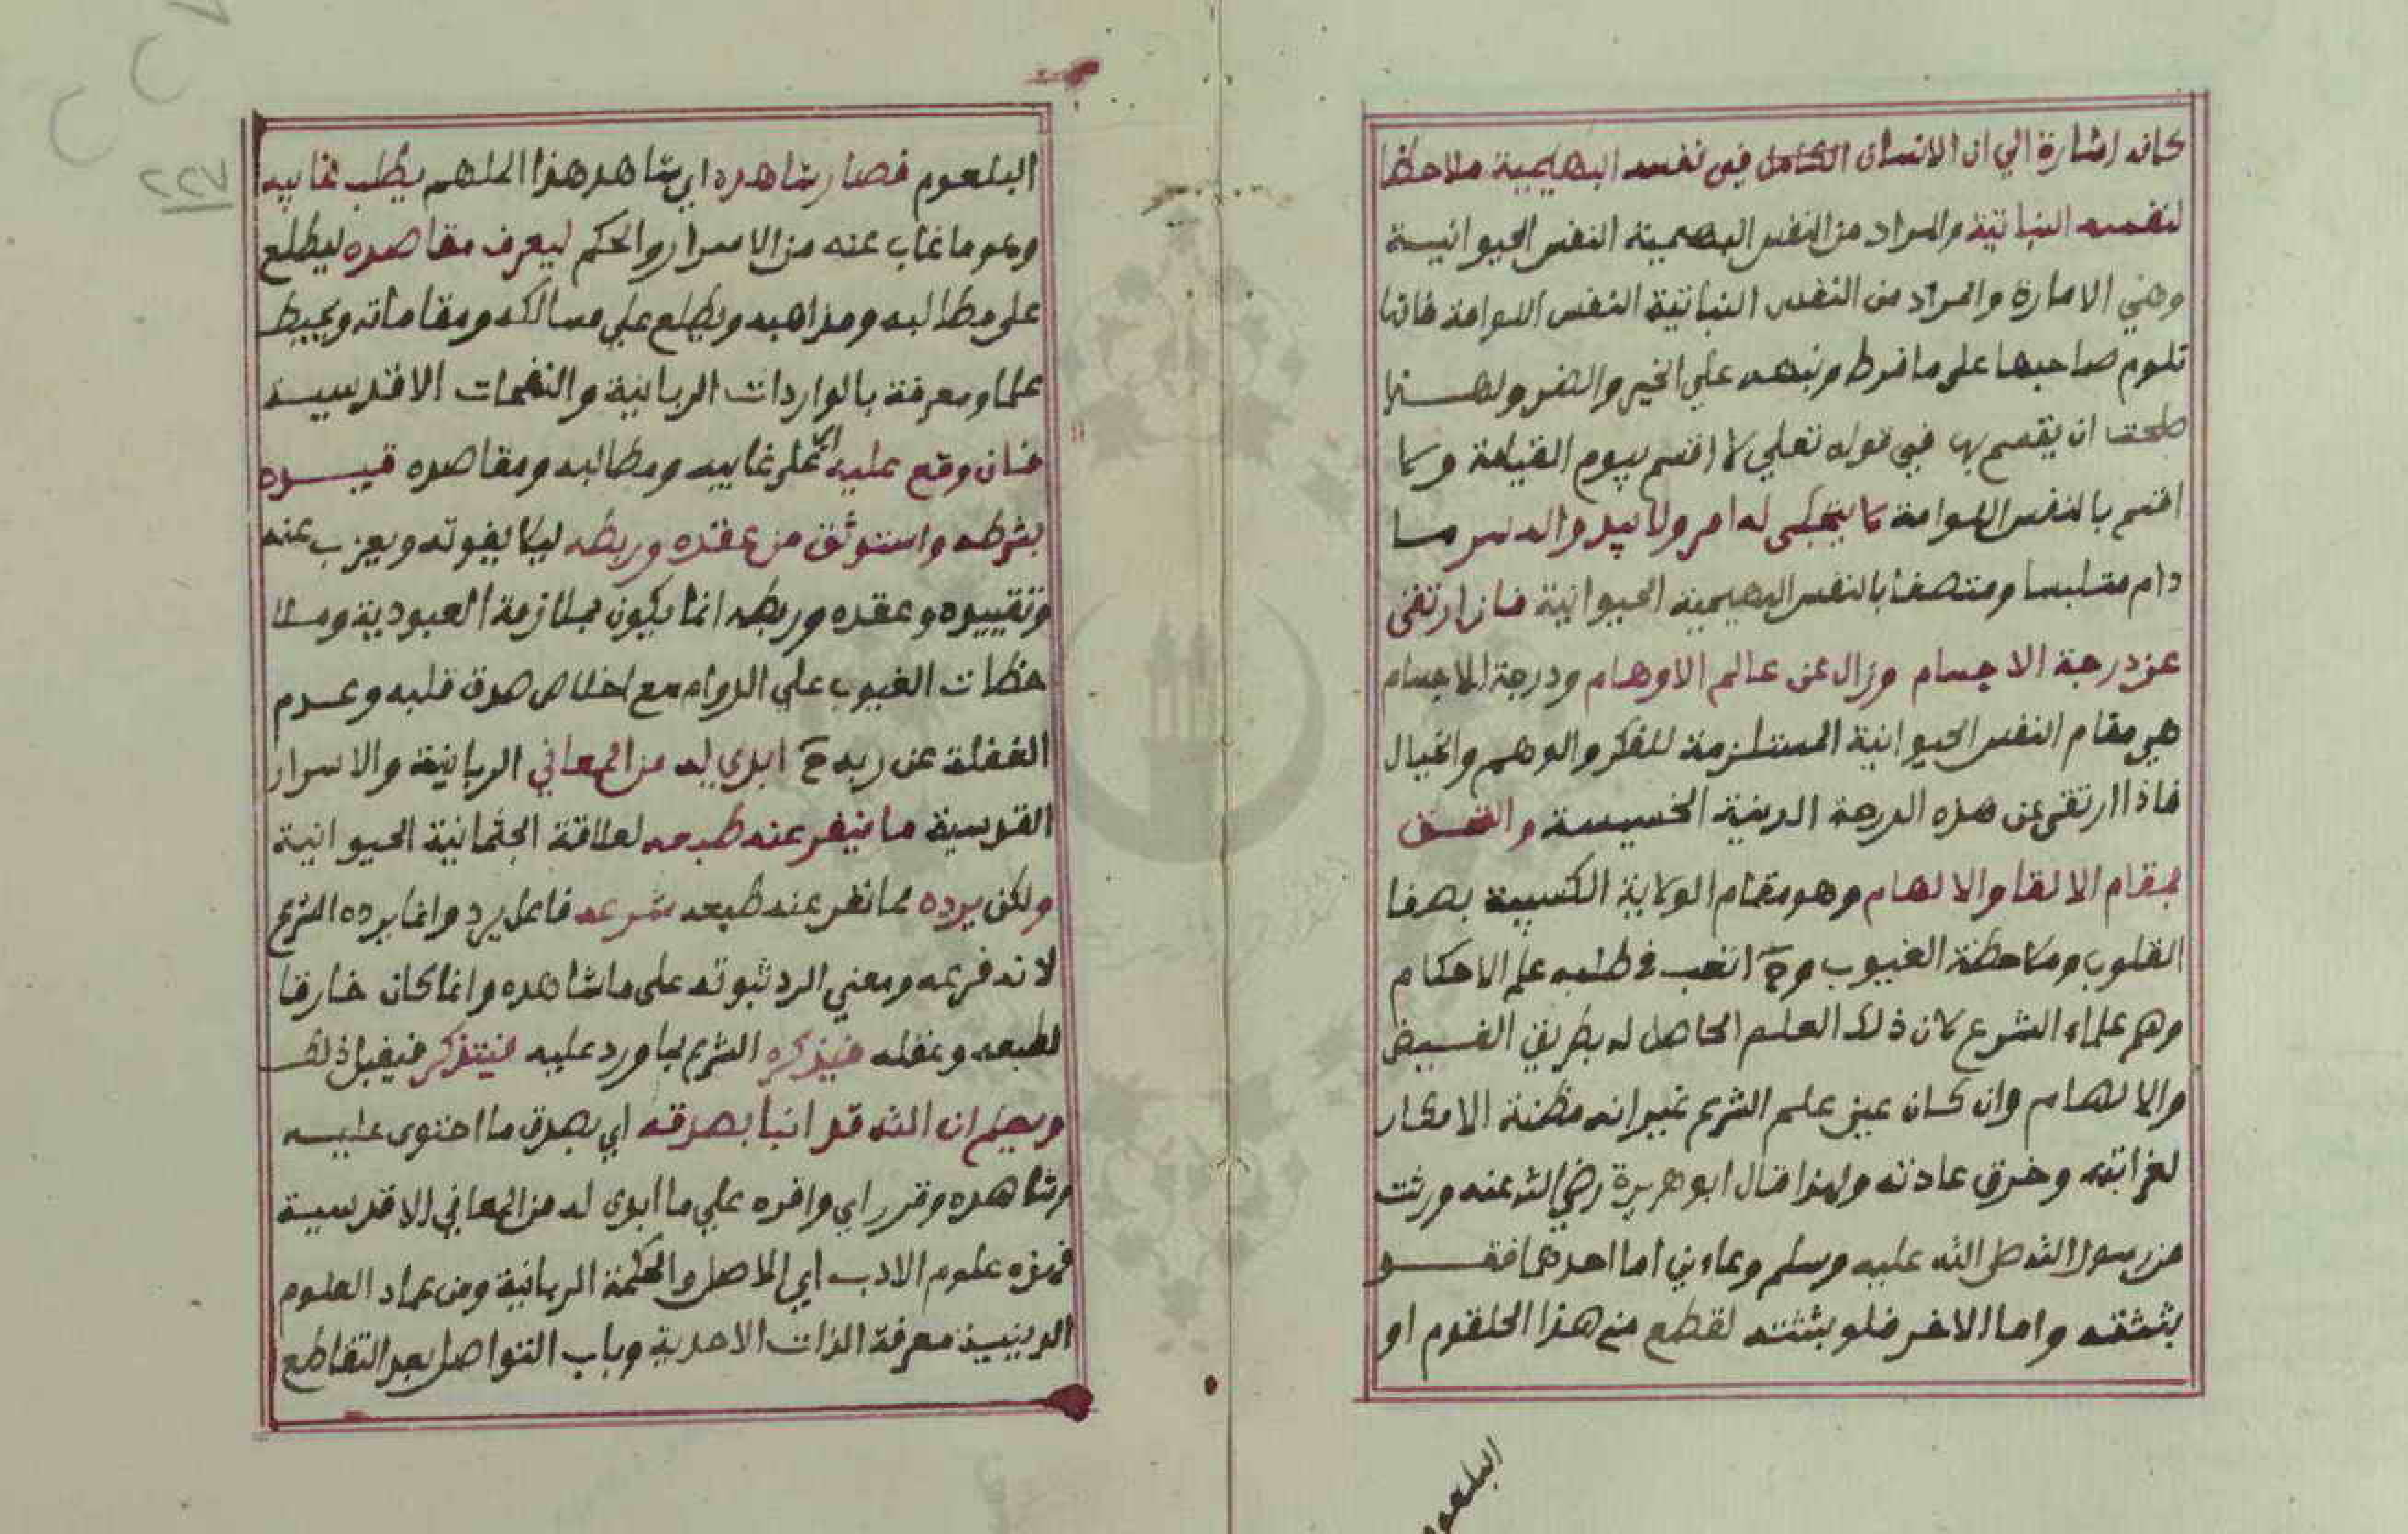 كانه اشارة الي ان الانسان الكامل في نفسه البهيمية ملاحظا
لنفسه النباتية والمراد من النفس البهيمية النفس الحيوانية
وهي الامارة والمراد من النفس النباتية النفس اللوامة فانها
تلوم صاحبها على ما فرط ونبهه علي الخير والضر ولهـذا
صلحت ان يقسم بها في قوله تعلي لا اقسم بيوم القيامة ولا
اقسم بالنفس اللوامة لا ينجلى له امر ولا يبدو له سر مـا
دام متلبسا ومتصفا بالنفس البهيمية الحيوانية فان ارتقى
عن درجة الاجسام وزال عن عالم الاوهام ودرجة الاجسام
هي مقام النفس الحيوانية المستلزمة للفكر والوهم والخيال
فاذا ارتقى عن هذه الدرجة الدنية الخسيسة والتحق
بمقام الالقا والالهام وهو مقام الولاية الكسبية بصفا
القلوب وملاحظة الغيوب وح اتعب في طلبه علم الاحكام
وهم علماء الشرع لان ذلك العلم الحاصل له بطريق الفـيض
والالهام وان كان عين علم الشرع غير انه مظنة الانكار
لغرابته وخرق عادته ولهذا قال ابو هريرة رضي الله عنه ورثت
من رسول الله صلى الله عليه وسلم وعاءين اما احدهما فقـد
بثثته واما الاخر فلو بثثته لقطع مني هذا الحلقوم او
البلعوم
البلعوم فصار شاهده اي شاهد هذا الملهم يطلب غاييه
وهو ما غاب عنه من الاسرار والحكم ليعرف مقاصده ليطلع
على مطالبه ومذاهبه ويطلع علي مسالكه ومقاماته ويحيط
علما ومعرفة بالواردات الربانية والنفحات الاقدسيـة
فان وقع عليه اي على غاييه ومطالبه ومقاصده قيـده
بشرطه واستوثق من عقده وربطه ليلا يفوته ويعزب عنه
وتقييده وعقده وربطه انما يكون بملازمة العبودية وملا
حظات الغيوب علي الدوام مع اخلاص صدق قلبه وعـدم
الغفلة عن ربه ح ابدى له من المعاني الربانية والاسرار
القدسية ما ينفر عنه طبعه لعلاقة الجثمانية الحيوانية
ولكن يرده مما نفر عنه طبعه شرعه فاعل يرد وانما يرده الشرع
لانه فرعه ومعني الرد ثبوته على ما شاهده وانما كان خارقا
لطبعه وعقله فيذكره الشرع بما ورد عليه فيتذكر فيقبل ذلك
ويعلم ان الله قد انبا بصدقه اي بصدق ما احتوى عليـه
وشاهده وقرر اي واقره علي ما ابدى له من المعاني الاقدسية
فهذه علوم الادب اي الاصل والحكمة الربانية ومن عماد العلوم
الدينية معرفة الذات الاحدية وباب التواصل بعد التقاطع
٢٢٧